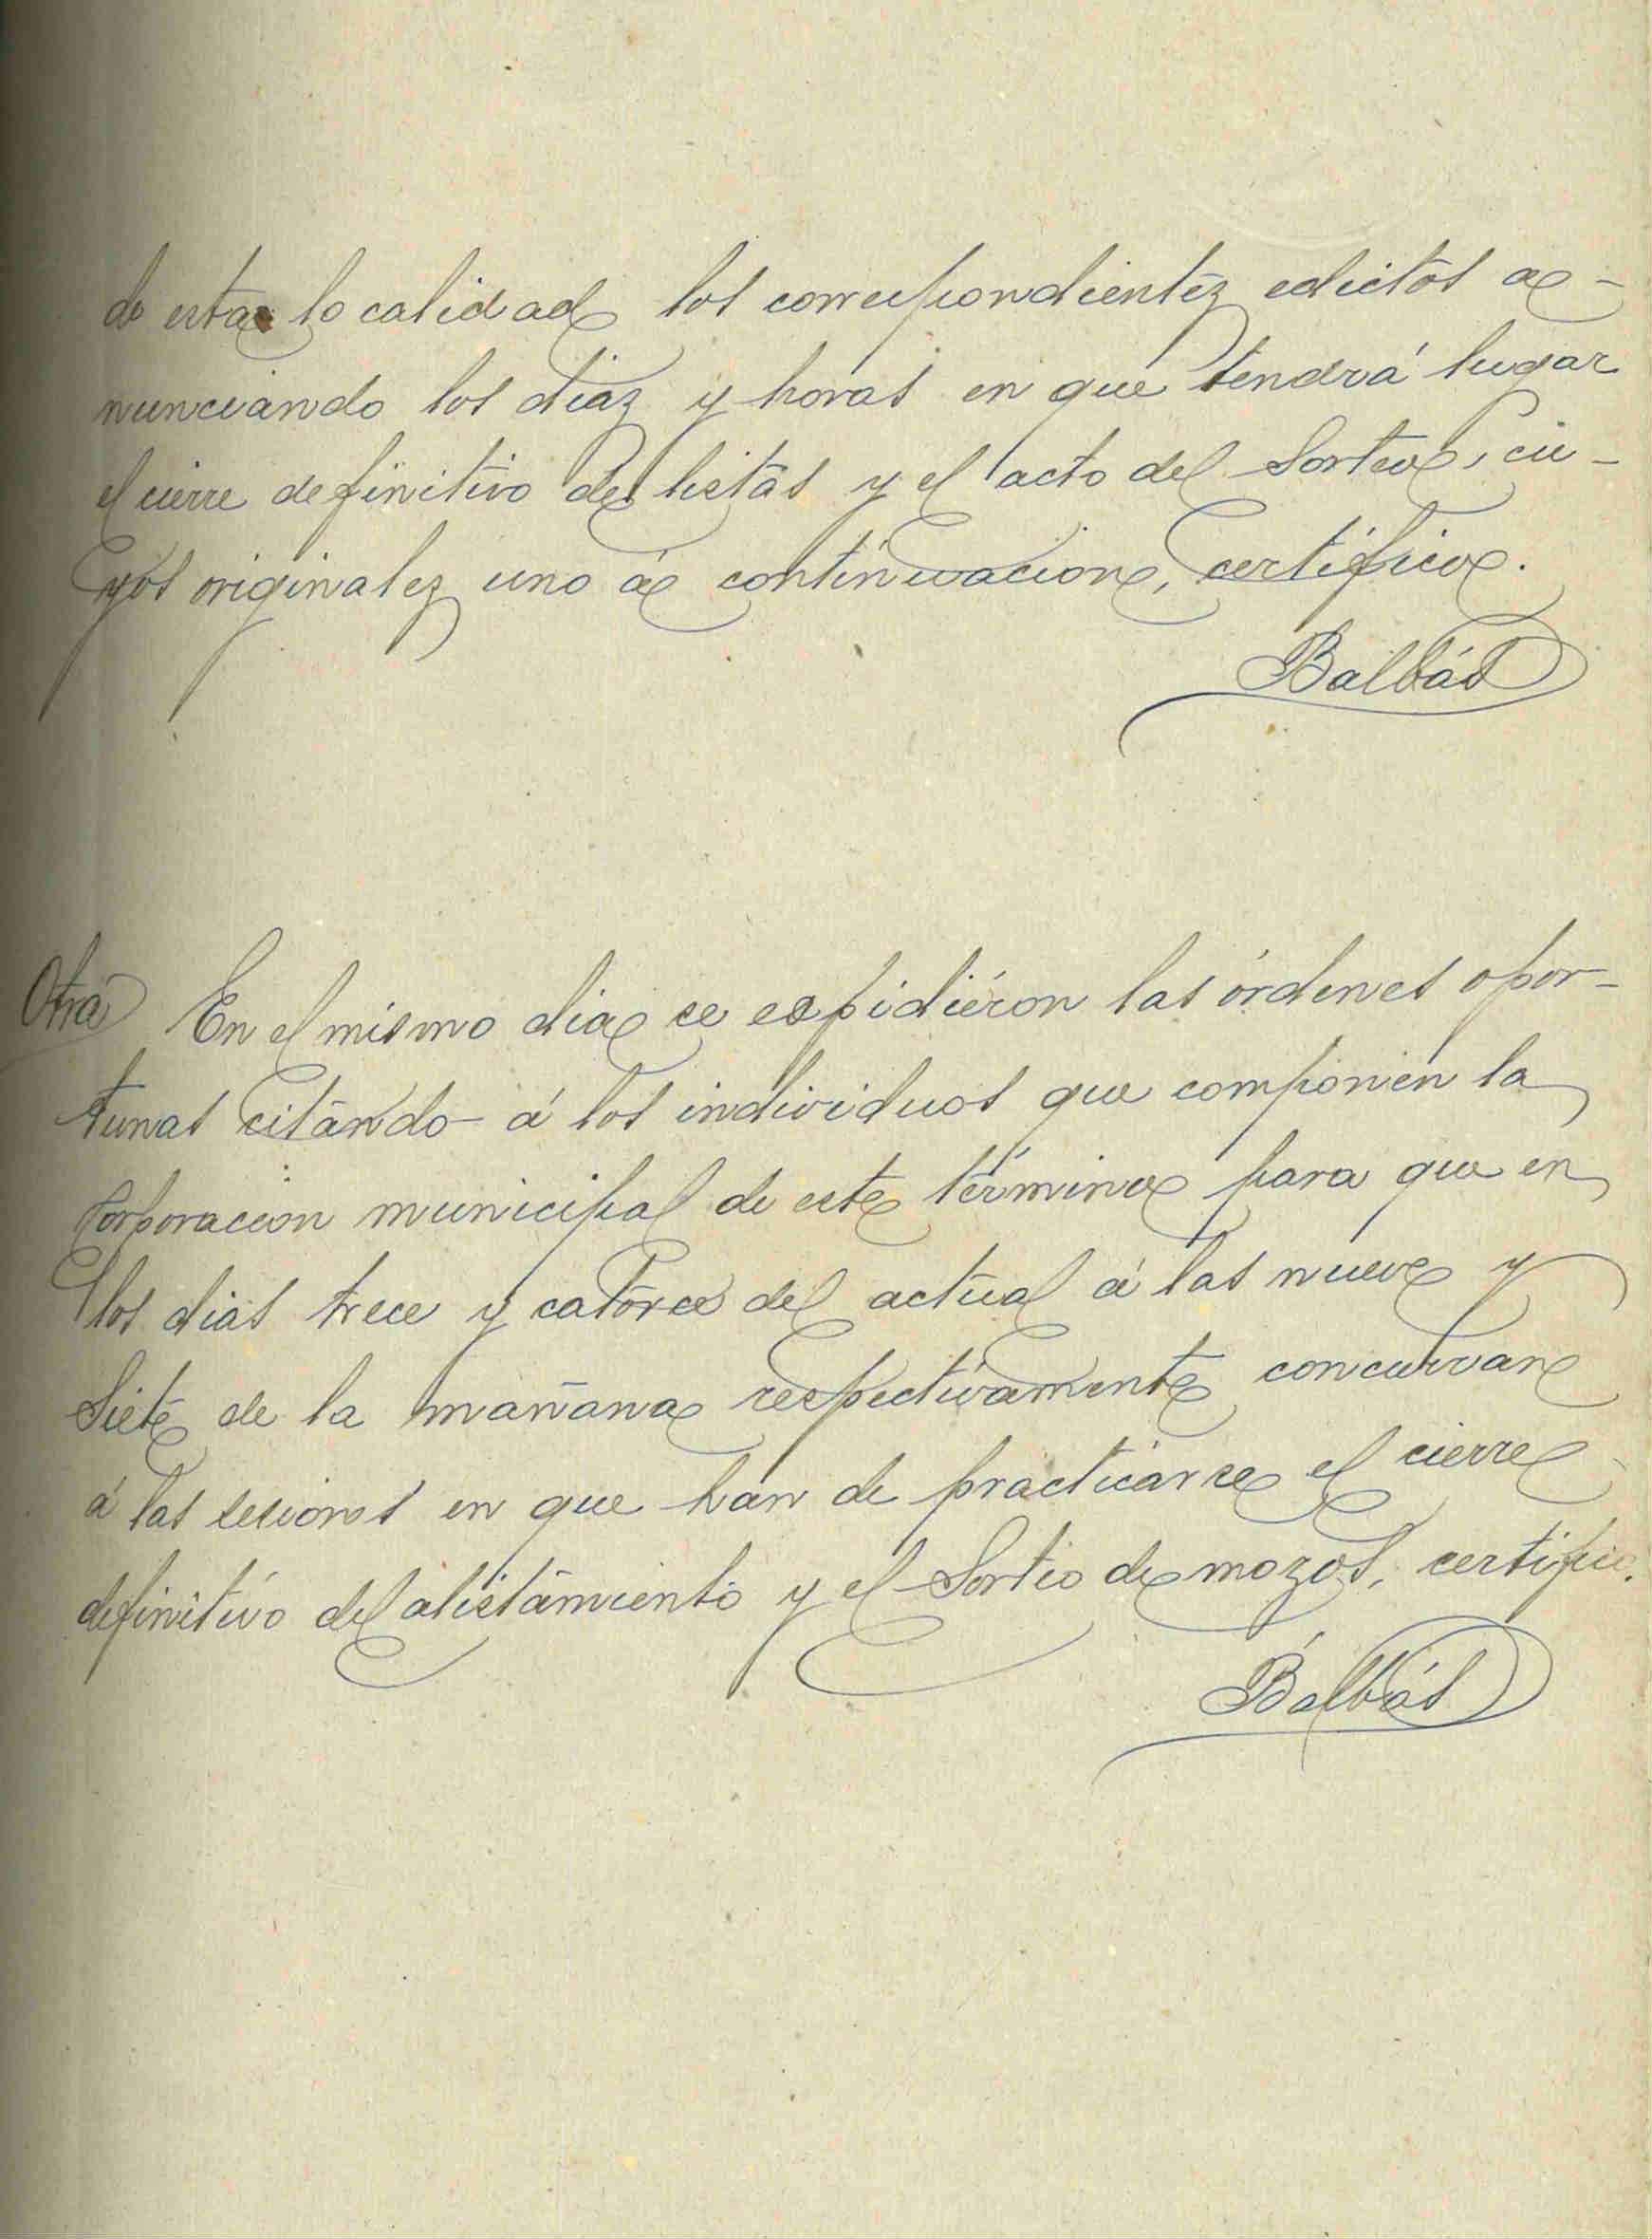 de esta localidad los correspondientez edictos a-
nunciando los diaz y horas en que tendrá lugar
el cierre definitivo de listas y el acto del Sorteo, cu-
yos originalez uno á continuacion, certifico.
Balbás
Otra En el mismo dia se espidieron las órdenes opor-
tunas citando á los individuos que componen la
Corporacion municipal de este término para que en
los dias trece y catorce del actual á las nueve y
Siete de la mañana respectivamente concurran
á las sesiones en que han de practicarse el cierre
definitivo del alistamiento y el Sorteo de mozos, certifico.
Balbás